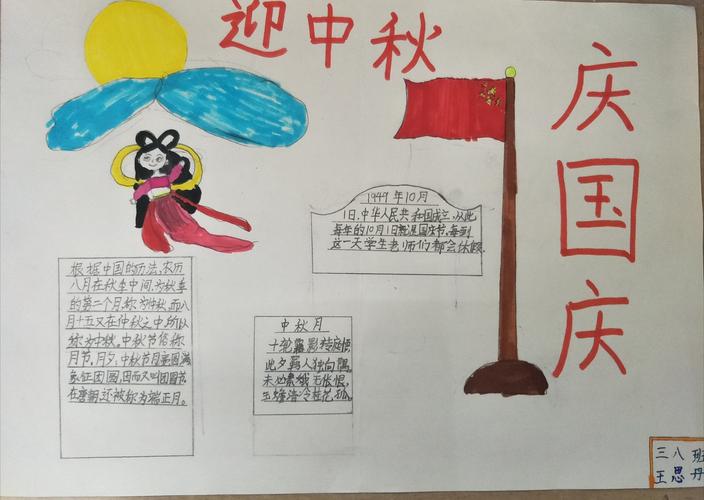 迎中秋
庆
国
庆
1949年10月
1日,中华人民共和国成立,从此
每年的10月1日就是国庆节,每到
这一天学生老师们都会休假.
根据中国的历法,农历
八月在秋季中间,为秋季
的第二个月,称为仲秋,而八
月十五又在仲秋之中,所以
称为中秋。中秋节俗称
月节,月夕,中秋节月亮圆满
象征团圆,因而又叫团圆节
在唐朝,还被称为端正月。
中秋月
十轮影转庭梧
此夕人独向隅
未必素娥无怅恨,
玉蟾清冷桂花,孤。
三八班
王思丹